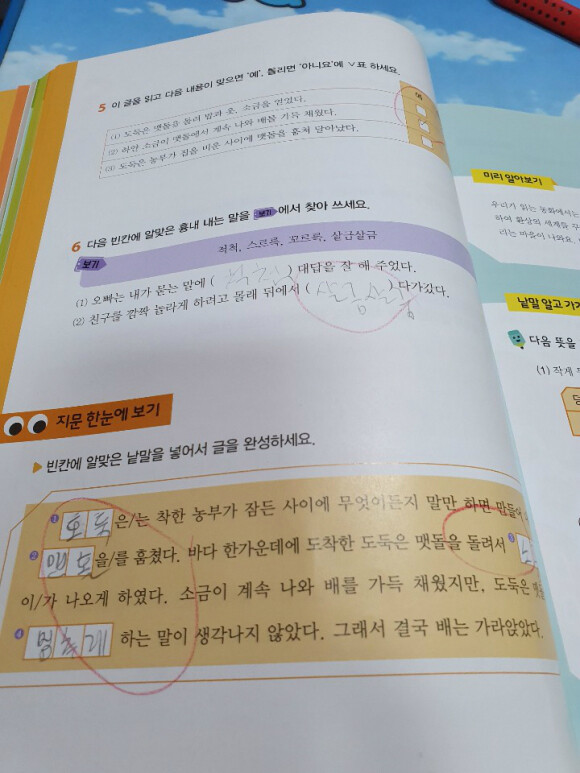 5 이 글을 읽고 다음 내용이 맞으면 '예', 틀리면 '아니요'에 ∨표 하세요.
예
(1) 도둑은 맷돌을 돌려 밥과 옷, 소금을 얻었다.
(2) 하얀 소금이 맷돌에서 계속 나와 배를 가득 채웠다.
(3) 도둑은 농부가 집을 비운 사이에 맷돌을 훔쳐 달아났다.
6 다음 빈칸에 알맞은 흉내 내는 말을 보기 에서 찾아 쓰세요.
보기
척척, 스르륵, 꼬르륵, 살금살금
(1) 오빠는 내가 묻는 말에 ( 척척 ) 대답을 잘 해 주었다.
(2) 친구를 깜짝 놀라게 하려고 몰래 뒤에서 ( 살금살금 ) 다가갔다.
지문 한눈에 보기
▶ 빈칸에 알맞은 낱말을 넣어서 글을 완성하세요.
❶ 도둑 은/는 착한 농부가 잠든 사이에 무엇이든지 말만 하면 만들어
❷ 맷돌 을/를 훔쳤다. 바다 한가운데에 도착한 도둑은 맷돌을 돌려서 ❸
이/가 나오게 하였다. 소금이 계속 나와 배를 가득 채웠지만, 도둑은
❹ 멈추게 하는 말이 생각나지 않았다. 그래서 결국 배는 가라앉았다.
미리 알아보기
우리가 읽는 동화에서는
하여 환상의 세계를
라는 마음이 나와요.
낱말 알고 가기
다음 뜻을
(1) 작세